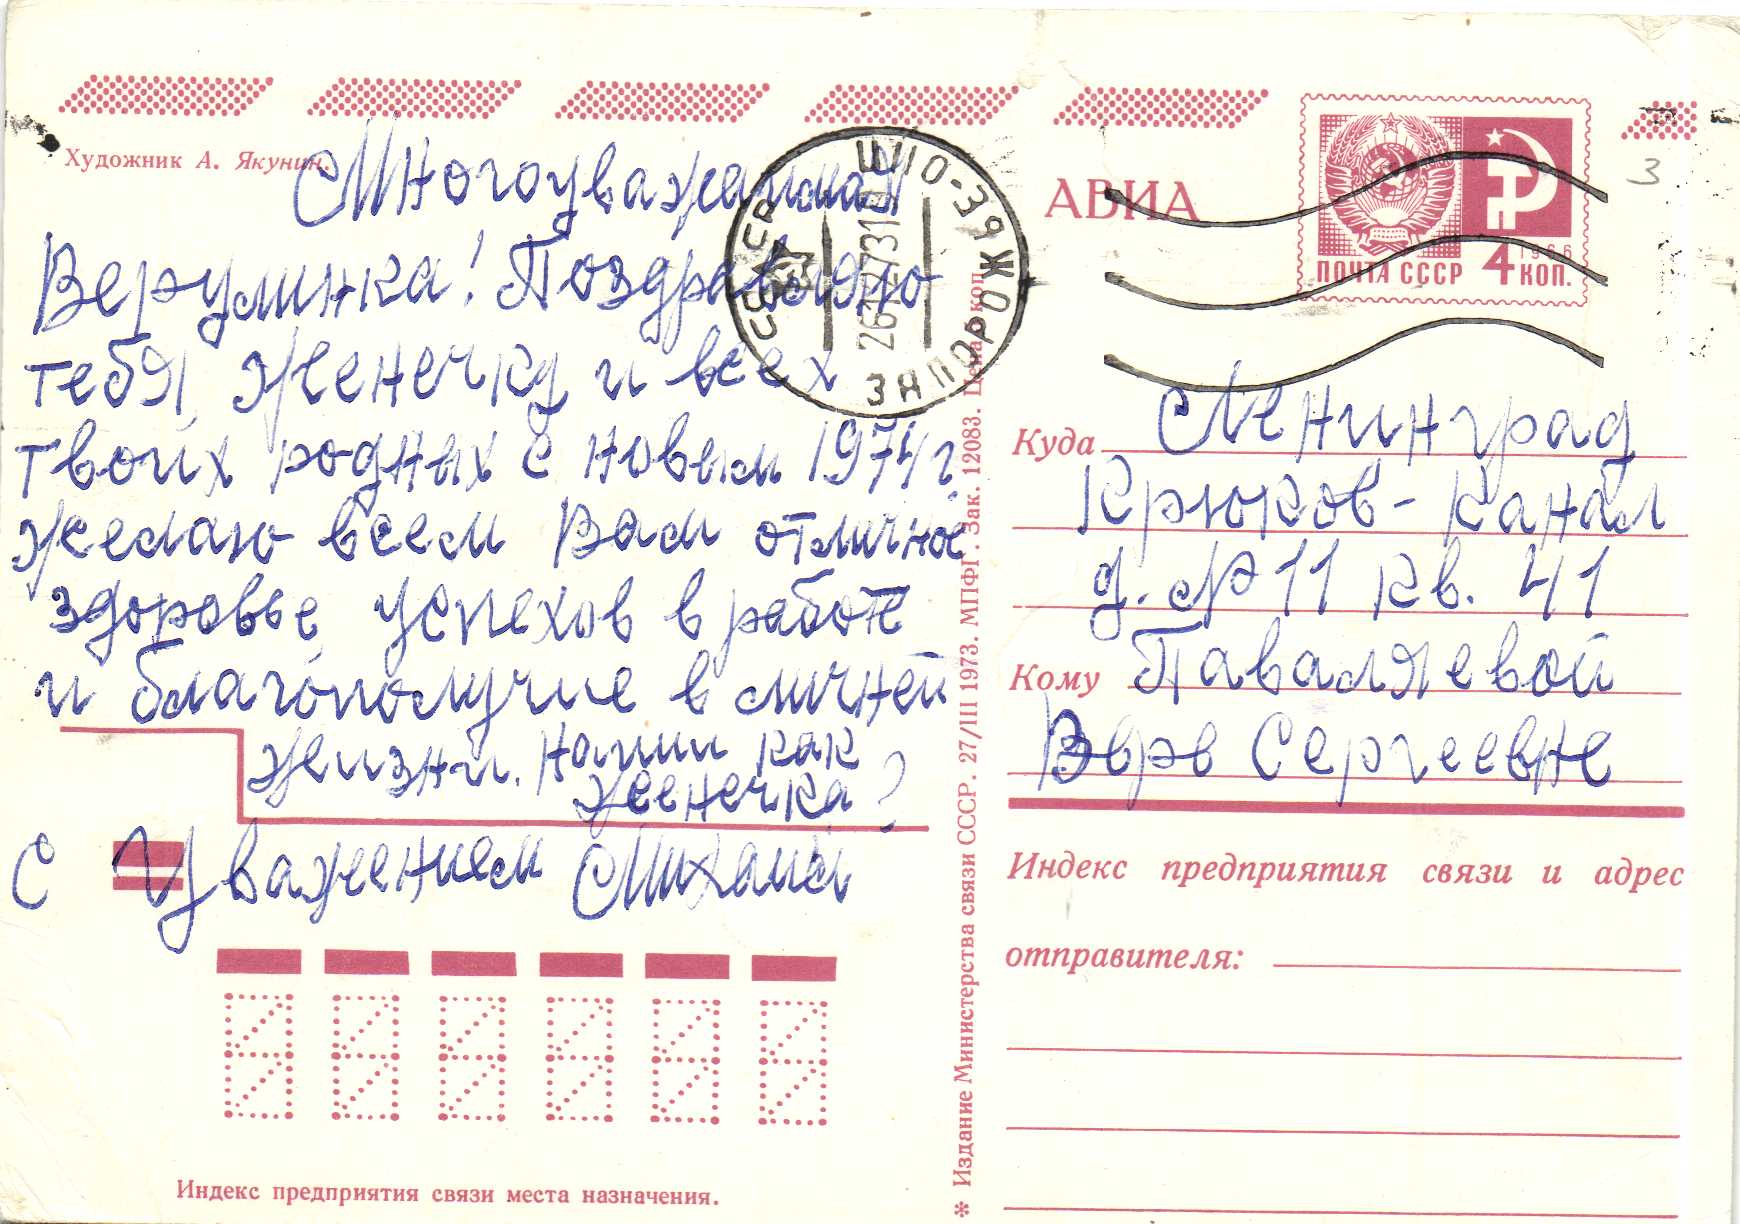 Художник А. Якунин.
Многоуважаимая
Верулинка! Поздравляю
тебя, Женечку и всех
твоих родных с новым 1974 г.
желаю всем Вам отличное
здоровье успехов в работе
и благополучие в личней
жизни. напиши как
Женечка?
С Уважением Михаил
Индекс предприятия связи места назначения.
СССР
26 12 73 19
ЗАПОРОЖЖЯ-10
✻ Издание Министерства связи СССР. 27/III 1973. МПФГ. Зак. 12083. Цена коп.
АВИА
1966
ПОЧТА СССР 4 КОП.
3
Куда Ленинград
Крюков-канал
д. № 11 кв. 41
Кому Паваляевой
Вере Сергеевне
Индекс предприятия связи и адрес
отправителя: